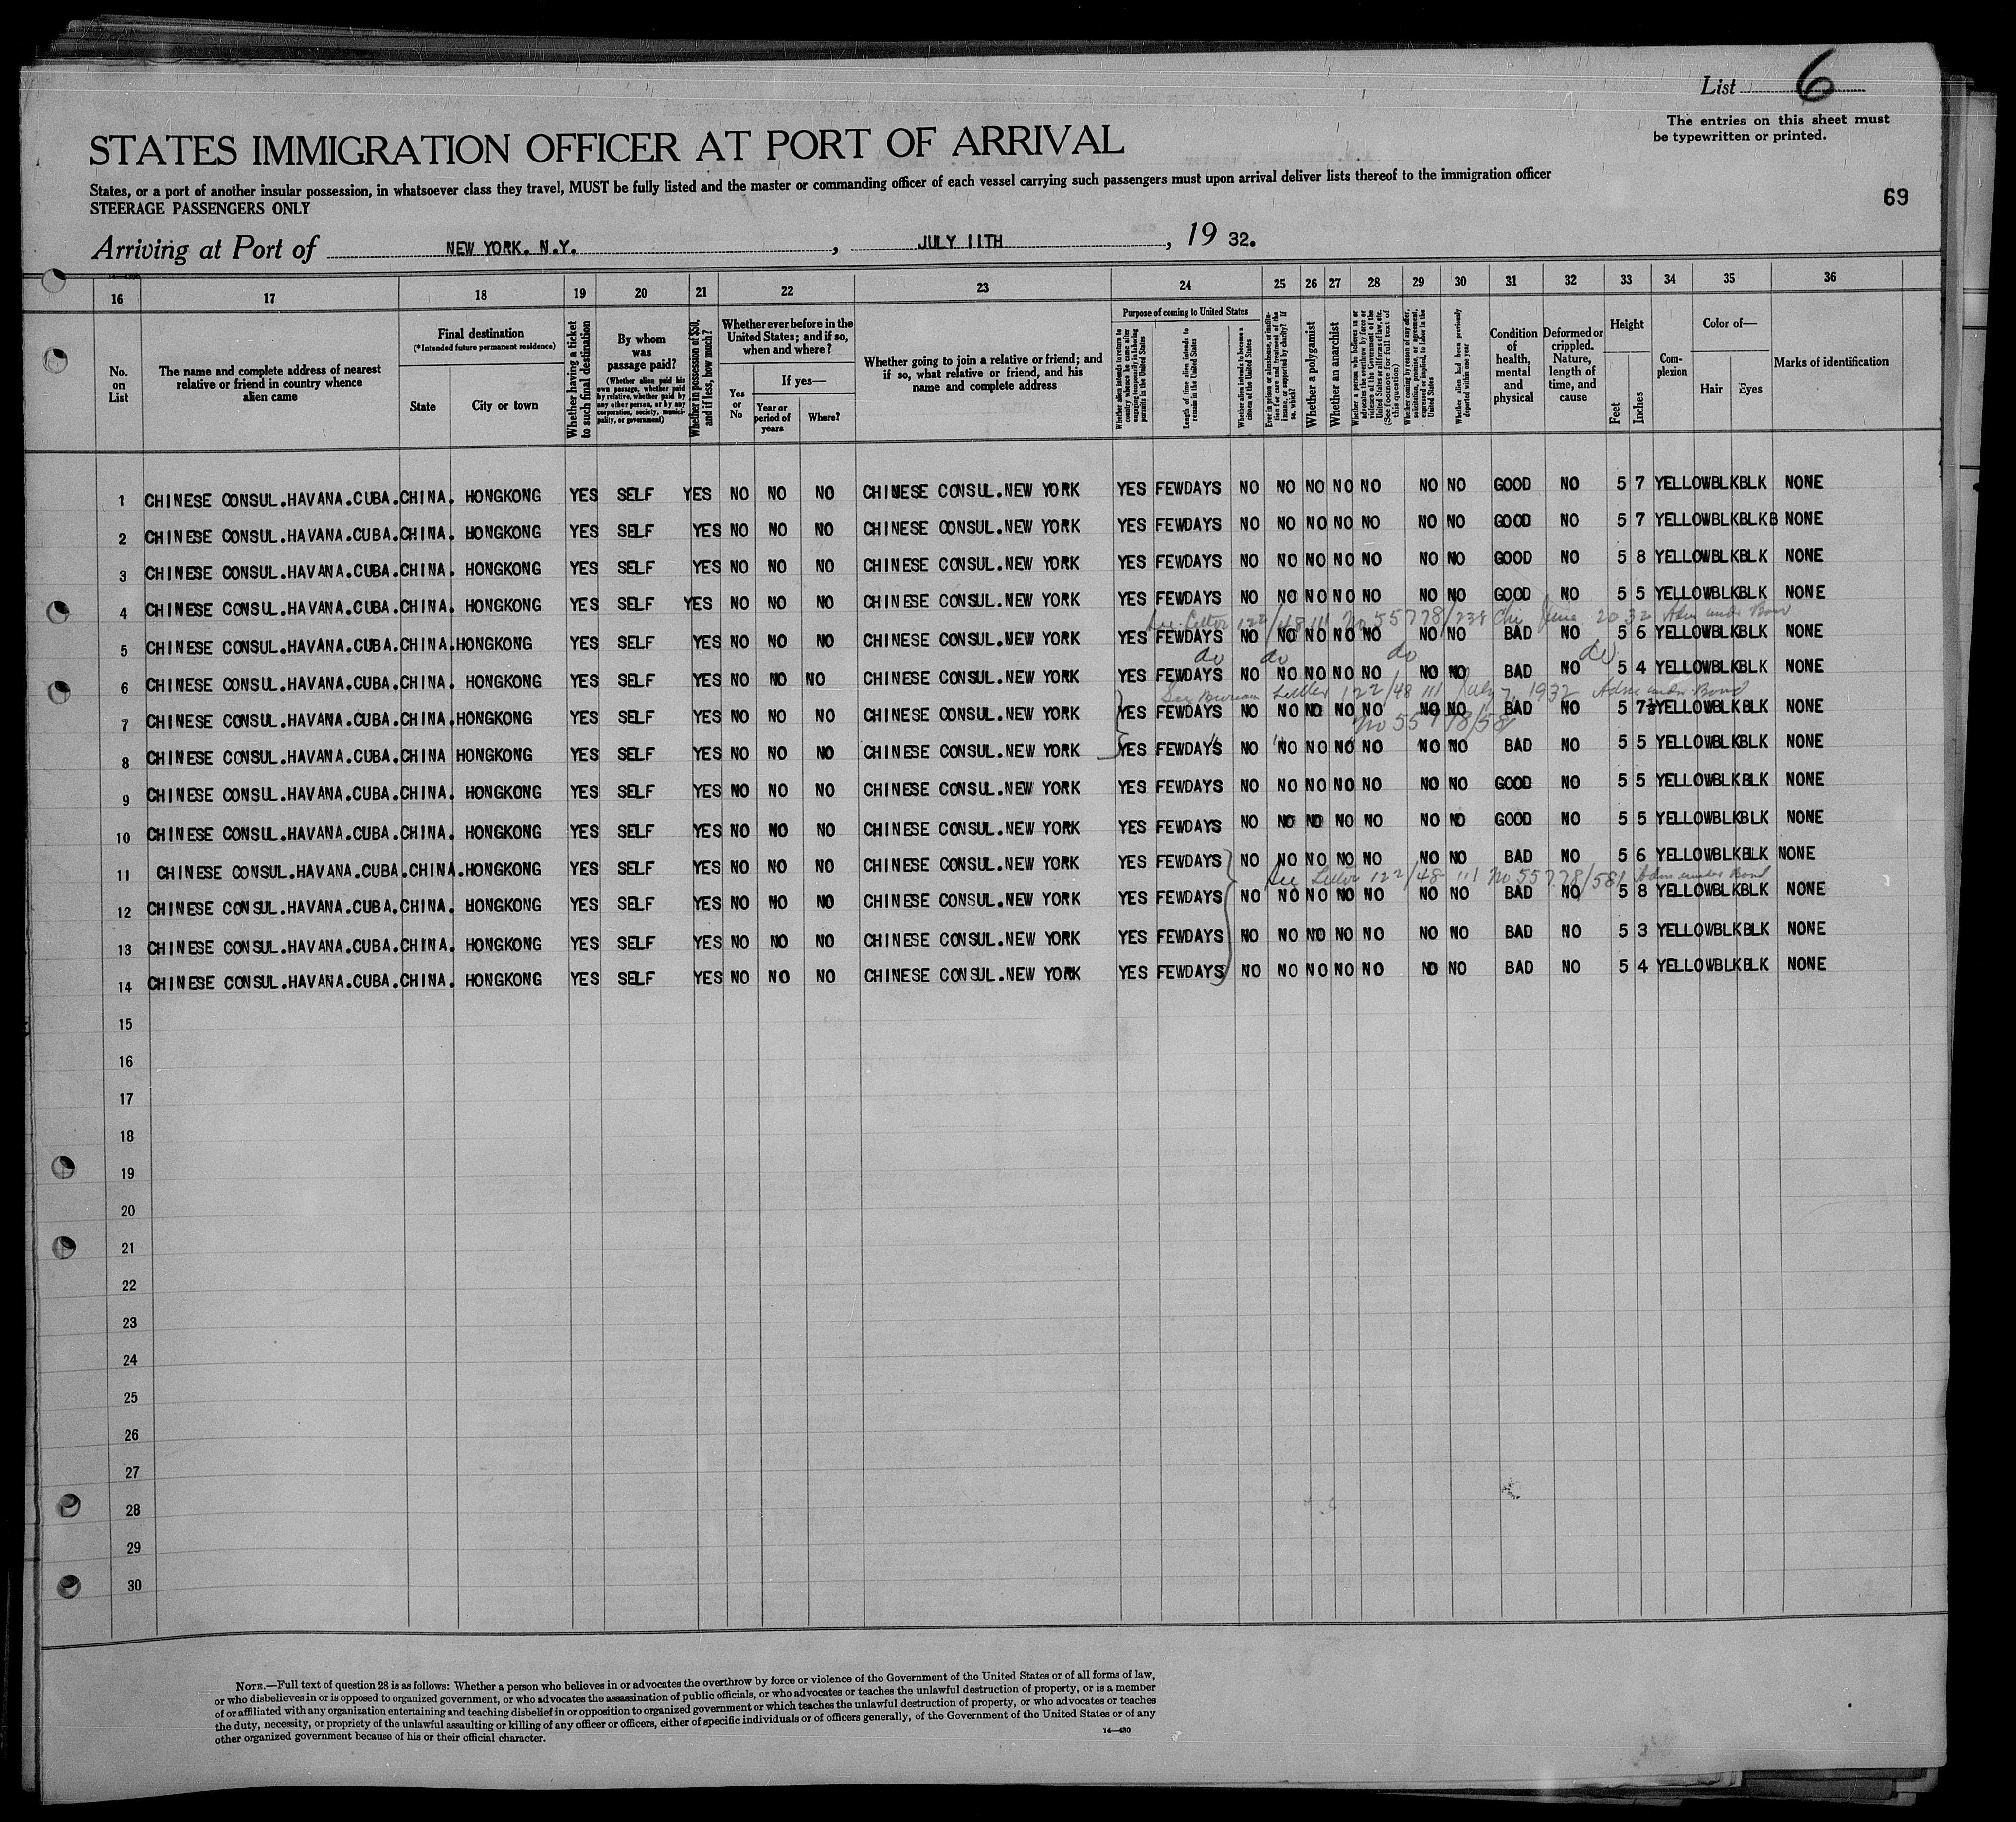 List 6
The entries on this sheet must
be typewritten or printed.
STATES IMMIGRATION OFFICER AT PORT OF ARRIVAL
States, or a port of another insular possession, in whatsoever class they travel, MUST be fully listed and the master or commanding officer of each vessel carrying such passengers must upon arrival deliver lists thereof to the immigration officer
STEERAGE PASSENGERS ONLY
69
Arriving at Port of NEW YORK. N.Y. , JULY 11TH , 19 32.
16 17 18 19 20 21 22 23 24 25 26 27 28 29 30 31 32 33 34 35 36
No. on List
The name and complete address of nearest relative or friend in country whence alien came
Final destination
(*Intended future permanent residence)
State
City or town
Whether having a ticket to such final destination
By whom was passage paid?
(Whether alien paid his own passage, whether paid by relative, whether paid by any other person, or by any corporation, society, municipality, or government)
Whether in possession of $50, and if less, how much?
Whether ever before in the United States; and if so, when and where?
Yes or No
If yes—
Year or period of years
Where?
Whether going to join a relative or friend; and if so, what relative or friend, and his name and complete address
Purpose of coming to United States
Whether alien intends to return to country whence he came after engaging temporarily in laboring pursuits in the United States
Length of time alien intends to remain in the United States
Whether alien intends to become a citizen of the United States
Ever in prison or almshouse, or institution for care and treatment of the insane, or supported by charity? If so, which?
Whether a polygamist
Whether an anarchist
Whether a person who believes in or advocates the overthrow by force or violence of the Government of the United States or all forms of law, etc. (See footnote for full text of this question)
Whether coming by reason of any offer, solicitation, promise, or agreement, expressed or implied, to labor in the United States
Whether alien had been previously deported within one year
Condition of health, mental and physical
Deformed or crippled. Nature, length of time, and cause
Height
Feet
Inches
Complexion
Color of—
Hair
Eyes
Marks of identification
1 CHINESE CONSUL.HAVANA.CUBA. CHINA. HONGKONG YES SELF YES NO NO NO CHINESE CONSUL.NEW YORK YES FEWDAYS NO NO NO NO NO NO NO GOOD NO 5 7 YELLOW BLK BLK NONE
2 CHINESE CONSUL.HAVANA.CUBA. CHINA. HONGKONG YES SELF YES NO NO NO CHINESE CONSUL.NEW YORK YES FEWDAYS NO NO NO NO NO NO NO GOOD NO 5 7 YELLOW BLK BLKB NONE
3 CHINESE CONSUL.HAVANA.CUBA. CHINA. HONGKONG YES SELF YES NO NO NO CHINESE CONSUL.NEW YORK YES FEWDAYS NO NO NO NO NO NO NO GOOD NO 5 8 YELLOW BLK BLK NONE
4 CHINESE CONSUL.HAVANA.CUBA. CHINA. HONGKONG YES SELF YES NO NO NO CHINESE CONSUL.NEW YORK YES FEWDAYS NO NO NO NO NO NO NO GOOD NO 5 5 YELLOW BLK BLK NONE
See Letter 122/48 111 No 55778/238 June 20 32 Adm under Bond
5 CHINESE CONSUL.HAVANA.CUBA. CHINA. HONGKONG YES SELF YES NO NO NO CHINESE CONSUL.NEW YORK YES FEWDAYS NO NO NO NO NO NO NO BAD NO 5 6 YELLOW BLK BLK NONE
do do do do
6 CHINESE CONSUL.HAVANA.CUBA. CHINA. HONGKONG YES SELF YES NO NO NO CHINESE CONSUL.NEW YORK YES FEWDAYS NO NO NO NO NO NO NO BAD NO 5 4 YELLOW BLK BLK NONE
See Bureau Letter 122/48 111 July 7, 1932 Adm under Bond
7 CHINESE CONSUL.HAVANA.CUBA. CHINA. HONGKONG YES SELF YES NO NO NO CHINESE CONSUL.NEW YORK YES FEWDAYS NO NO NO NO NO NO NO BAD NO 5 7½ YELLOW BLK BLK NONE
No 55778/58
8 CHINESE CONSUL.HAVANA.CUBA. CHINA HONGKONG YES SELF YES NO NO NO CHINESE CONSUL.NEW YORK YES FEWDAYS NO NO NO NO NO NO NO BAD NO 5 5 YELLOW BLK BLK NONE
9 CHINESE CONSUL.HAVANA.CUBA. CHINA. HONGKONG YES SELF YES NO NO NO CHINESE CONSUL.NEW YORK YES FEWDAYS NO NO NO NO NO NO NO GOOD NO 5 5 YELLOW BLK BLK NONE
10 CHINESE CONSUL.HAVANA.CUBA. CHINA. HONGKONG YES SELF YES NO NO NO CHINESE CONSUL.NEW YORK YES FEWDAYS NO NO NO NO NO NO NO GOOD NO 5 5 YELLOW BLK BLK NONE
11 CHINESE CONSUL.HAVANA.CUBA. CHINA. HONGKONG YES SELF YES NO NO NO CHINESE CONSUL.NEW YORK YES FEWDAYS NO NO NO NO NO NO NO BAD NO 5 6 YELLOW BLK BLK NONE
See Letter 122/48 111 No 55778/581 Adm under Bond
12 CHINESE CONSUL.HAVANA.CUBA. CHINA. HONGKONG YES SELF YES NO NO NO CHINESE CONSUL.NEW YORK YES FEWDAYS NO NO NO NO NO NO NO BAD NO 5 8 YELLOW BLK BLK NONE
13 CHINESE CONSUL.HAVANA.CUBA. CHINA. HONGKONG YES SELF YES NO NO NO CHINESE CONSUL.NEW YORK YES FEWDAYS NO NO NO NO NO NO NO BAD NO 5 3 YELLOW BLK BLK NONE
14 CHINESE CONSUL.HAVANA.CUBA. CHINA. HONGKONG YES SELF YES NO NO NO CHINESE CONSUL.NEW YORK YES FEWDAYS NO NO NO NO NO NO NO BAD NO 5 4 YELLOW BLK BLK NONE
15
16
17
18
19
20
21
22
23
24
25
26
27
28
29
30
NOTE.—Full text of question 28 is as follows: Whether a person who believes in or advocates the overthrow by force or violence of the Government of the United States or of all forms of law,
or who disbelieves in or is opposed to organized government, or who advocates the assassination of public officials, or who advocates or teaches the unlawful destruction of property, or is a member
of or affiliated with any organization entertaining and teaching disbelief in or opposition to organized government or which teaches the unlawful destruction of property, or who advocates or teaches
the duty, necessity, or propriety of the unlawful assaulting or killing of any officer or officers, either of specific individuals or of officers generally, of the Government of the United States or of any
other organized government because of his or their official character.
14—430